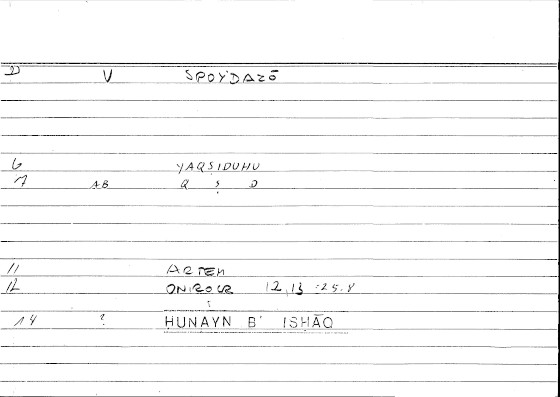 V SPOYDAZŌ
6 YAQṢIDUHU
7 AB Q Ṣ D
11 ARTEM
12 ONIROCR 12,13 :25.8
14 ? HUNAYN B' ISHĀQ